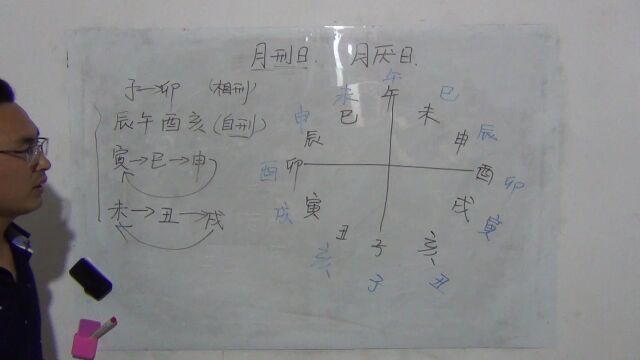 月刑日. 月厌日.
子—卯 (相刑)
辰午酉亥(自刑)
寅→巳→申
未→丑→戌
午
未 午 巳
申 巳 未
辰 申 辰
酉 卯 酉 卯
戌 寅 戌 寅
丑 子 亥
亥 子 丑